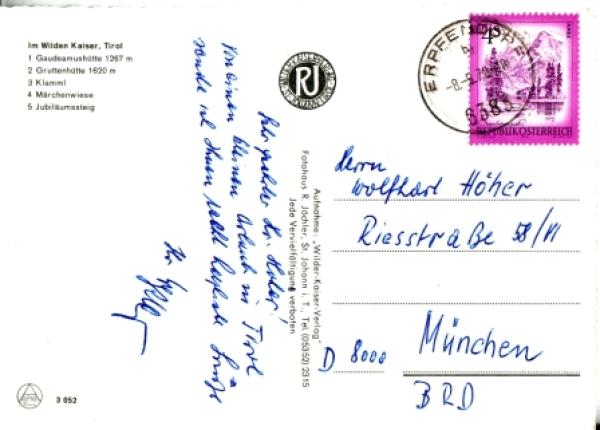 Im Wilden Kaiser, Tirol
1 Gaudeamushütte 1267 m
2 Gruttenhütte 1620 m
3 Klamml
4 Märchenwiese
5 Jubiläumssteig
3 052
Sehr geehrter Hr. Höher!
Von einem kleinen Urlaub in Tirol
sende ich Ihnen recht herzliche Grüße
Ihr
RJ
Aufnahme: „Wilder-Kaiser-Verlag“
Fotohaus R. Jöchler, St. Johann i. T., Tel. (05352) 2315
Jede Vervielfältigung verboten
ERPFENDORF
6383
4
REPUBLIK ÖSTERREICH
Herrn
Wolfhart Höher
Riesstraße 58/VI
D 8000 München
BRD